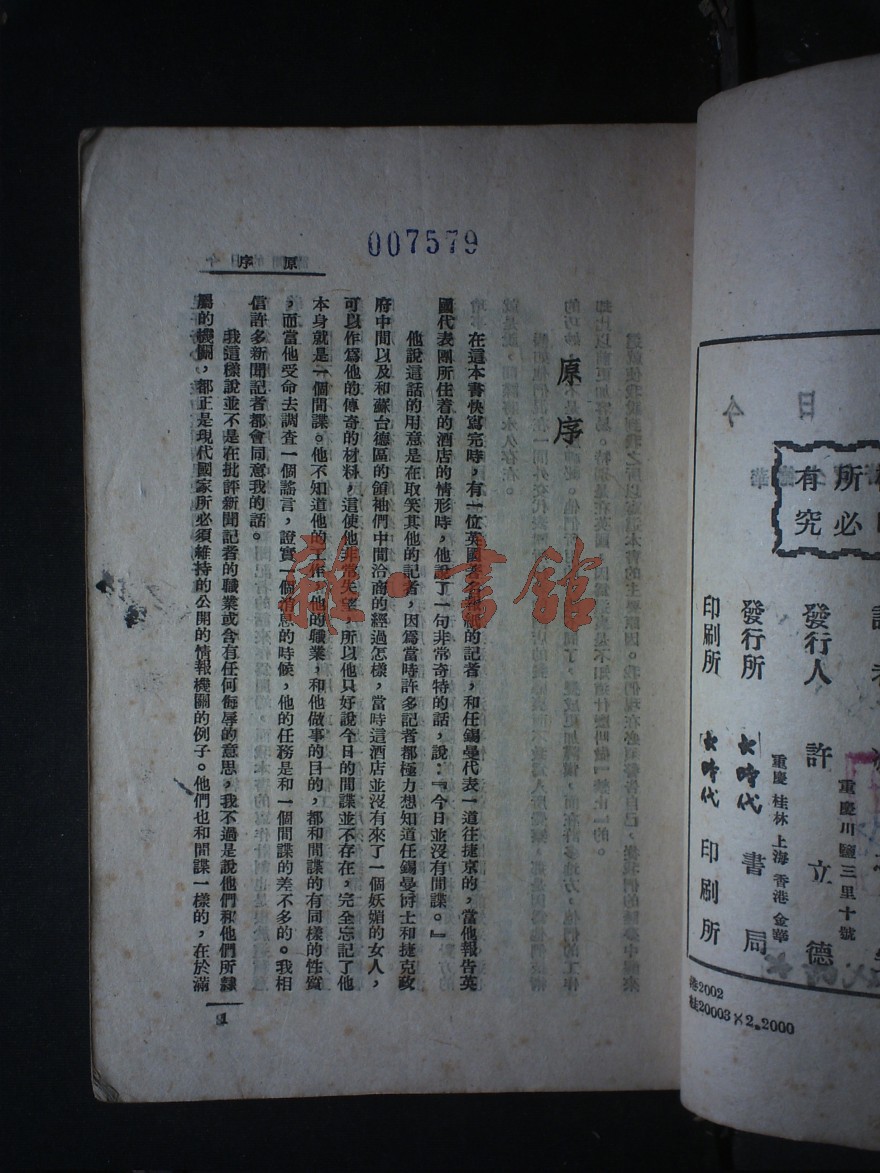 007579
原序
原序
在這本書快寫完時，有一位英國著名報紙的記者，和任錫曼代表一道往捷京的，當他報告英
國代表團所住着的酒店的情形時，他說了一句非常奇特的話，說：『今日並沒有間諜。』
他說這話的用意是在取笑其他的記者，因爲當時許多記者都極力想知道任錫曼博士和捷克政
府中間以及和蘇台德區的領袖們中間洽商的經過怎樣，當時這酒店並沒有來了一個妖媚的女人，
可以作爲他的傳奇的材料，這使他非常失望，所以他只好說今日的間諜並不存在，完全忘記了他
本身就是一個間諜。他不知道他的工作，他的職業，和他做事的目的，都和間諜的有同樣的性質
，而當他受命去調查一個謠言，證實一個消息的時候，他的任務是和一個間諜的差不多的。我相
信許多新聞記者都會同意我的話。
我這樣說並不是在批評新聞記者的職業或含有任何侮辱的意思，我不過是說他們和他們所隸
屬的機關，都正是現代國家所必須維持的公開的情報機關的例子。他們也和間諜一樣的，在於滿
1
雜·書館
有所
究必
重慶川鹽三里十號
發行人 許立德
重慶 桂林 上海 香港 金華
發行所 大時代書局
印刷所 大時代印刷所
港2002
桂20003×2.2000